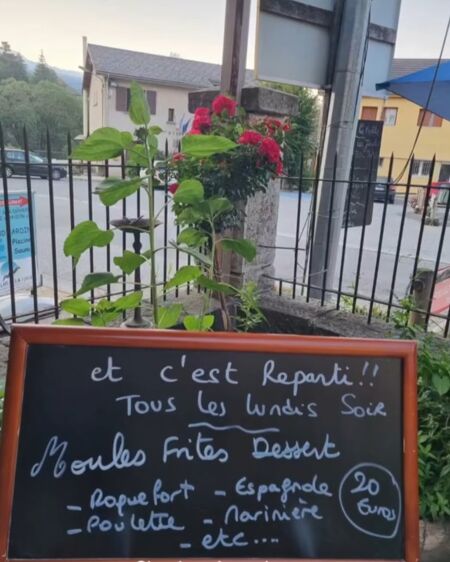 et c'est Reparti!!
Tous Les Lundis Soir
Moules Frites Dessert
- Roquefort - Espagnole
- Poulette - Marinière
- etc....
20
Euros